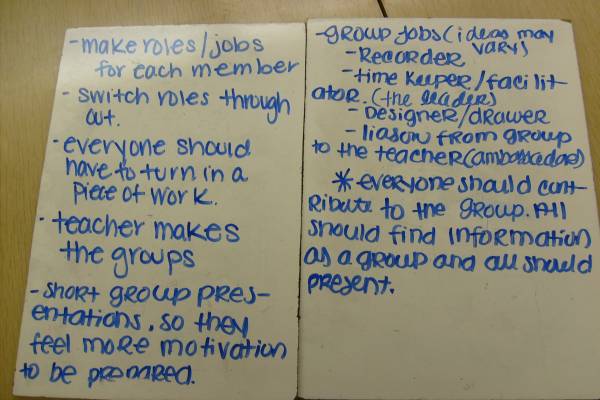 -make roles/jobs
for each member
- switch roles through
out.
-everyone should
have to turn in a
piece of work.
- teacher makes
the groups
- short group pres-
entations, so they
feel more motivation
to be prepared.
-group jobs (ideas may
vary)
- Recorder
-time keeper/facilit-
ator. (the leader)
- Designer/drawer
- liason from group
to the teacher (ambassador)
* everyone should cont-
ribute to the group. All
should find information
as a group and all should
present.